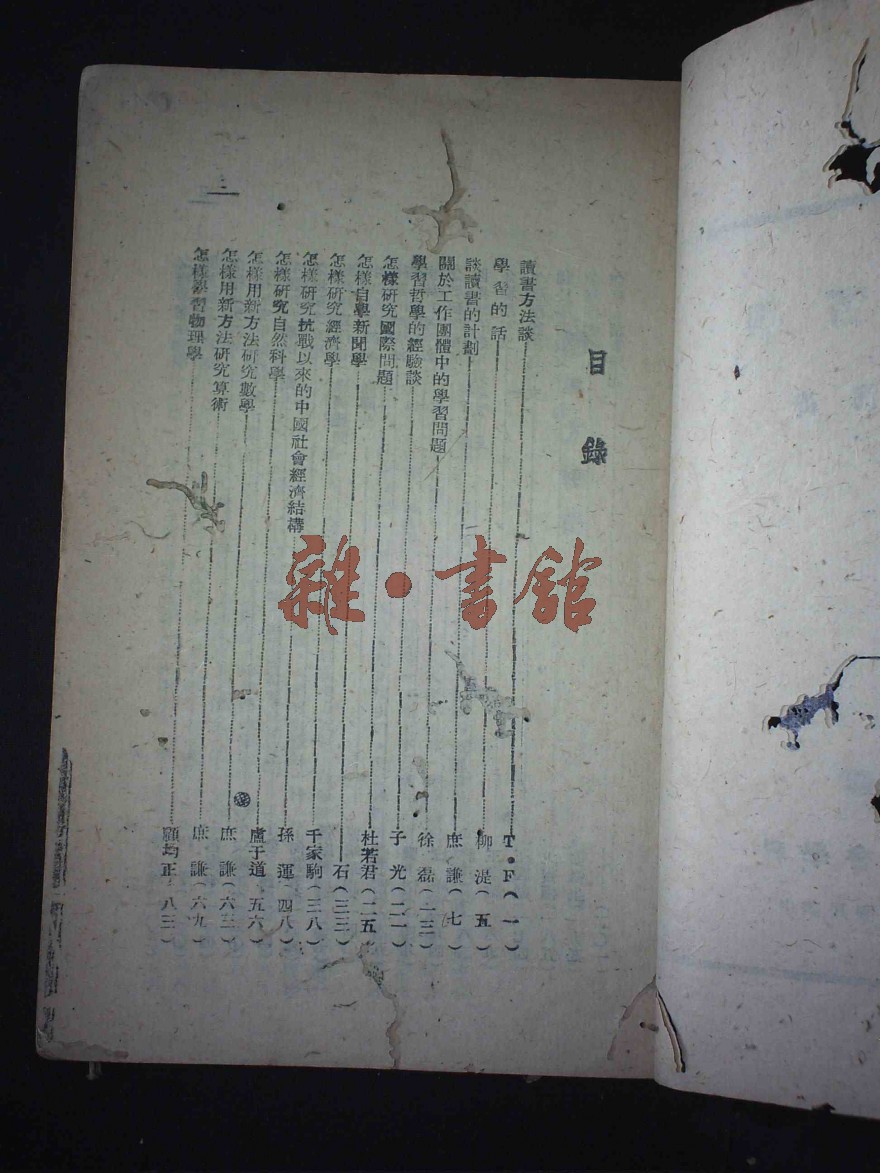 目錄
讀書方法談 T·F(一)
學習的話 柳湜(五)
談讀書的計劃 庶謙(七)
關於工作團體中的學習問題 徐磊(一三)
學習哲學的經驗談 子光(二一)
怎樣研究國際問題 杜若君(二五)
怎樣自學新聞學 石(三三)
怎樣研究經濟學 千家駒(三八)
怎樣研究抗戰以來的中國社會經濟結構 孫運(四八)
怎樣研究自然科學 盧于道(五六)
怎樣用新方法研究數學 庶謙(六三)
怎樣用新方法研究算術 庶謙(六九)
怎樣學習物理學 顧均正(八三)
雜·書館